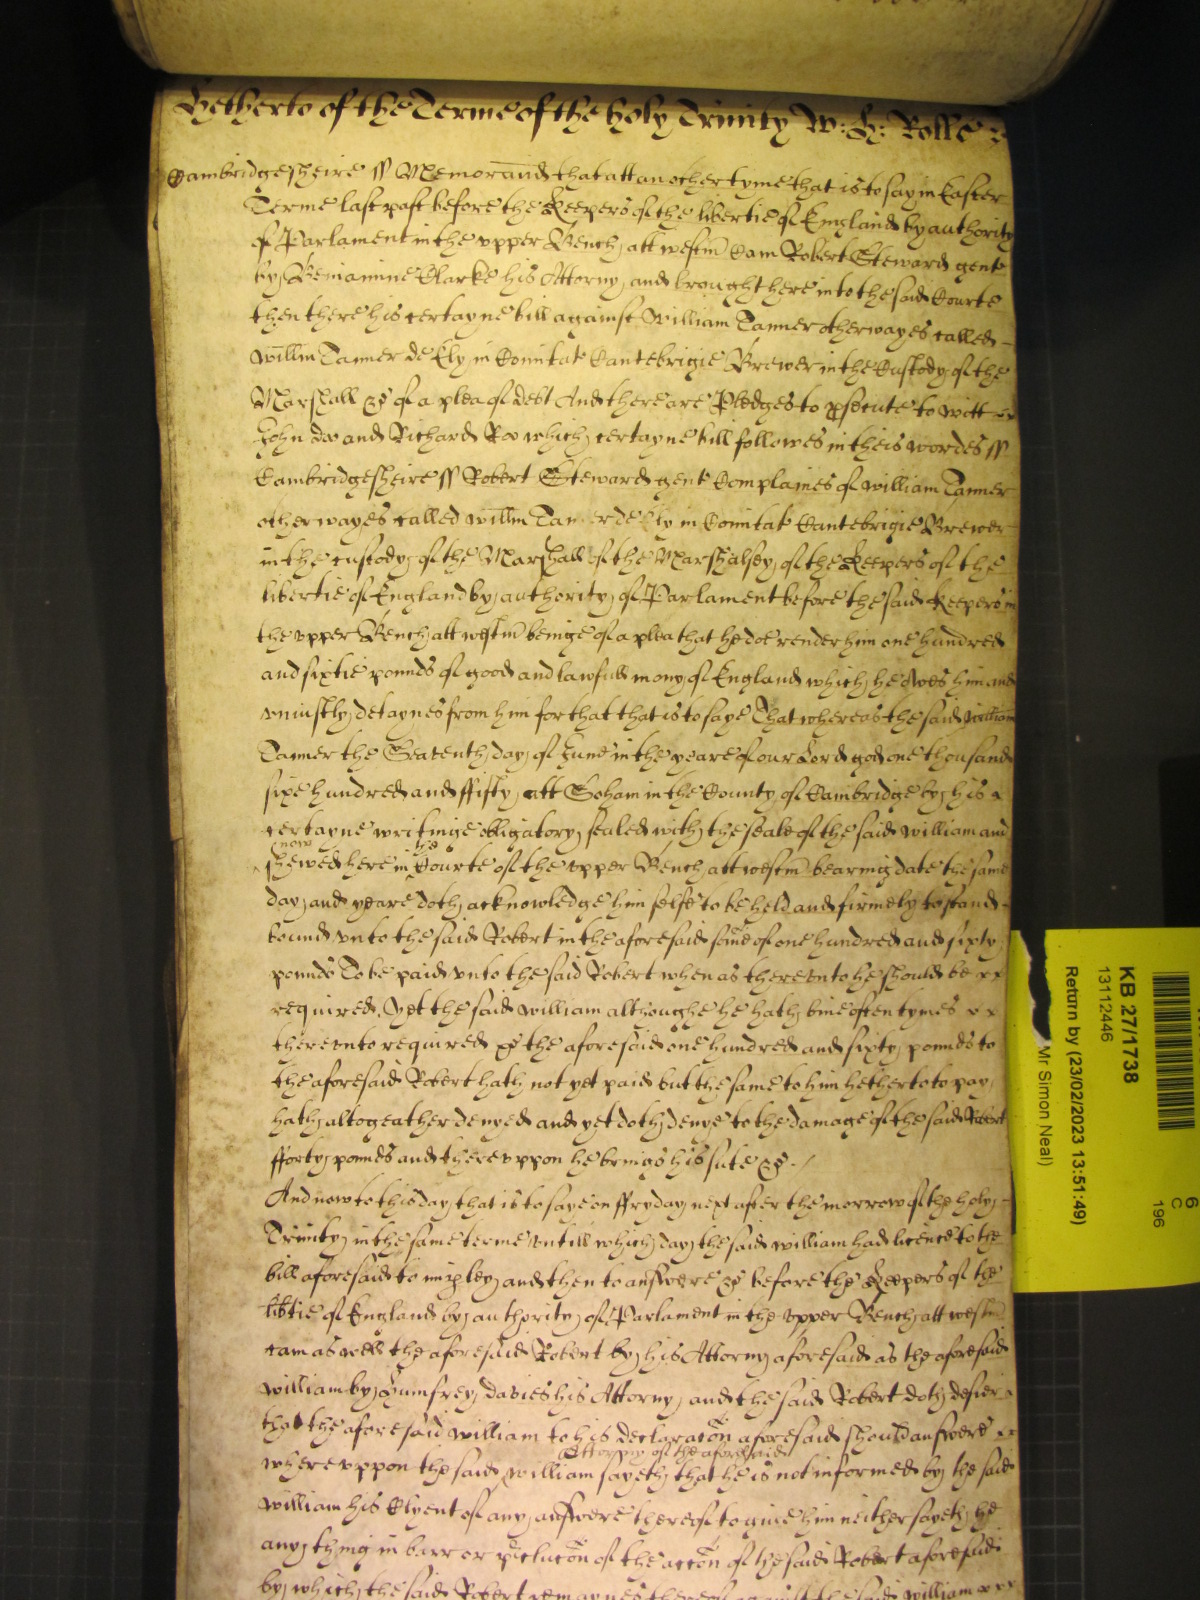 Hetherto of the Terme of the holy Trinity W: H: Rolle
Cambridgesheire ss Memorand that att another tyme that is to say in Easter
Terme last past before the Keepers of the libertie of England by authority
of Parlament in the upper Bench att westm Cam Robert Steward gent
by Beniamine Clarke his Attorny and brought here into the said Courte
then there his certayne bill against William Tanner otherwayes called
Willm Tanner de Ely in Comitat Cantebrigie Brewer in the Custody of the
Marshall &c of a plea of debt And there are Pledges to psecute to witt
John doo and Richard Roo which certayne bill followes in theis wordes ss
Cambridgesheire ss Robert Steward gent Complaines of william Tanner
otherwayes called willm Tanner de Ely in Comitat Cantebrigie Brewer
in the custody of the Marshall of the Marshalsey of the Keepers of the
libertie of England by authority of Parlament before the said Keepers in
the upper Bench att westm beinge of a plea that he doe render him one hundred
and sixtie pounds of good and lawfull mony of England which he owes him and
uniustly detaynes from him for that that is to saye That whereas the said william
Tanner the Seaventh day of June in the yeare of our Lord god one thousand
sixe hundred and ffifty att Soham in the County of Cambridge by his
certayne writinge obligatory sealed with the seale of the said William and
now the
shewed here in Courte of the upper Bench att westm bearing date the same
day and yeare doth acknowledge him selfe to be held and firmely to stand
bound unto the said Robert in the aforesaid some of one hundred and sixty
pounds To be paid unto the said Robert when as thereunto he should be xx
required, Yet the said william althoughe he hath bine often tymes x x
thereunto required &c the aforesaid one hundred and sixty pounds to
the aforesaid Robert hath not yet paid but the same to him hetherto to pay
hath altogeather denyed and yet doth denye to the damage of the said Robert
fforty pounds and thereuppon he brings his sute &c
And now to this day that is to saye on ffryday next after the morrow of the holy
Trinity in the same terme untill which day the said william had licence to the
bill aforesaid to imparley and then to answere &c before the Keepers of the
libtie of England by authority of Parlament in the upper Bench att westm
cam as well the aforesaid Robert by his Attorny aforesaid as the aforesaid
william by Humfrey davies his Attorny and the said Robert doth desier
that the aforesaid william to his declaracon aforesaid should answere xx
Attorny of the aforesaid
whereuppon the said william sayeth that he is not informed by the said
william his Clyent of any answere thereof to give him neither sayeth he
any thing in barr or pclucon of the accon of the said Robert aforesaid
by which the said Robert remaynes thereof against the said william xxx
KB 27/1738
13112446
Return by (23/02/2023 13:51:49)
Mr Simon Neal)
6
C
196